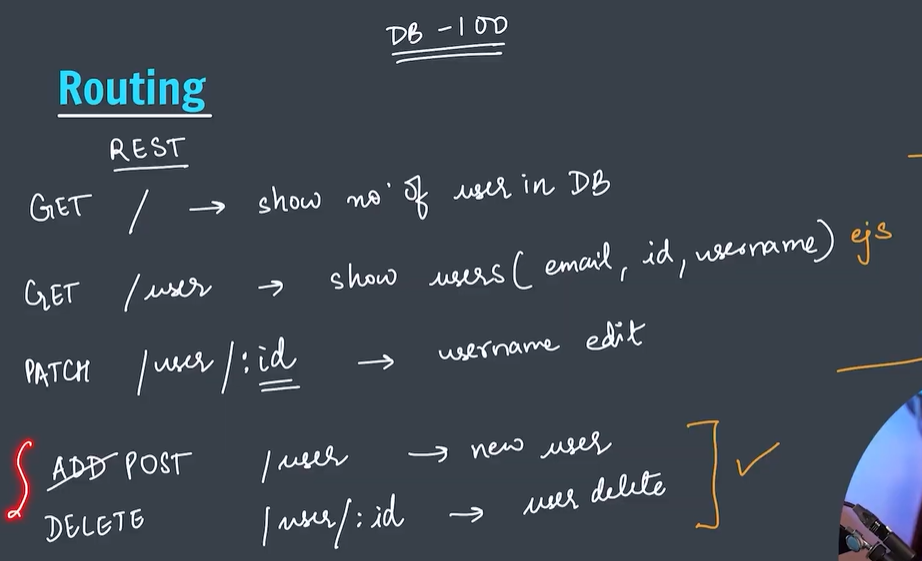 DB - 100
Routing
REST
GET / → show no. of user in DB
GET /user → show users ( email, id, username) ejs
PATCH /user/:id → username edit
ADD POST /user → new user
DELETE /user/:id → user delete